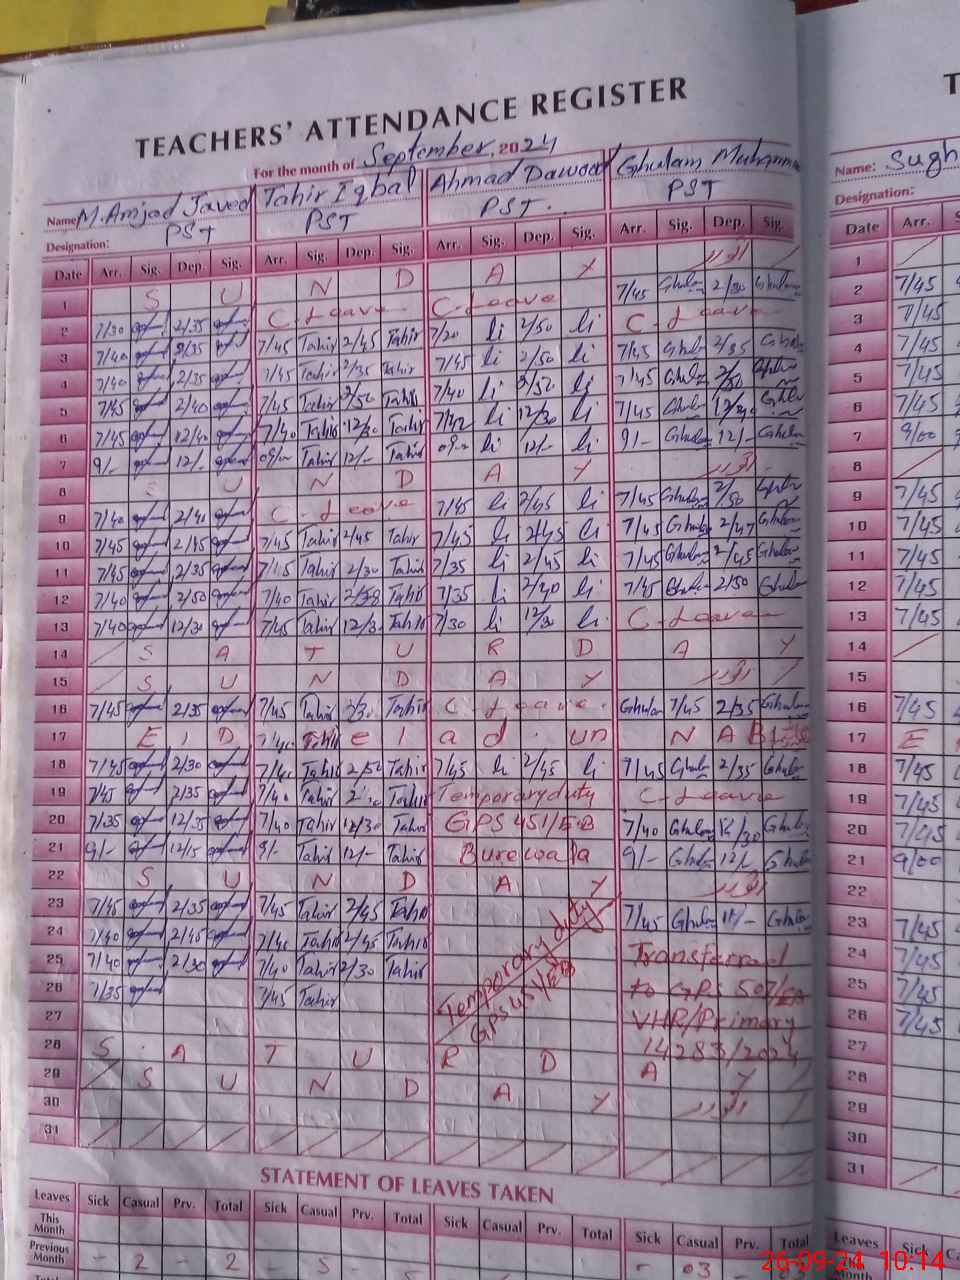 TEACHERS' ATTENDANCE REGISTER
For the month of September, 2024
Name: M. Amjad Javed Tahir Iqbal Ahmad Dawood Ghulam Muhamm
Designation: PST PST PST. PST
Date Arr. Sig. Dep. Sig. Arr. Sig. Dep. Sig. Arr. Sig. Dep. Sig. Arr. Sig. Dep. Sig.
1 S U N D A Y اتوار
2 7/30 2/35 C. Leave C. Leave 7/45 Ghulam 2/30 Ghulam
3 7/40 2/35 7/45 Tahir 2/45 Tahir 7/20 li 2/50 li C. Leave
4 7/40 2/35 7/45 Tahir 2/35 Tahir 7/45 li 2/50 li 7/45 Ghulam 2/35 Ghulam
5 7/45 2/40 7/45 Tahir 2/50 Tahir 7/40 li 2/50 li 7/45 Ghulam 2/50 Ghulam
6 7/45 12/40 7/40 Tahir 12/30 Tahir 7/42 li 12/30 li 7/45 Ghulam 12/30 Ghulam
7 9/- 12/- Tahir 12/- Tahir li 12/- li 9/- Ghulam 12/- Ghulam
8 S U N D A Y اتوار
9 7/40 2/40 C. Leave 7/45 li 2/45 li 7/45 Ghulam 2/50 Ghulam
10 7/45 2/45 7/45 Tahir 2/45 Tahir 7/45 li 2/45 li 7/45 Ghulam 2/47 Ghulam
11 7/45 2/35 7/45 Tahir 2/30 Tahir 7/35 li 2/45 li 7/45 Ghulam 2/45 Ghulam
12 7/40 2/50 7/40 Tahir Tahir 7/35 li 2/40 li 7/45 Ghulam 2/50 Ghulam
13 7/40 12/30 7/45 Tahir 12/3 Tahir 7/30 li 12/30 li C. Leave
14 S A T U R D A Y
15 S U N D A Y اتوار
16 7/45 2/35 7/45 Tahir 2/30 Tahir C. Leave. Ghulam 7/45 2/35 Ghulam
17 E I D Tahir e l a d . un N A B
18 7/45 2/30 7/40 Tahir 2/50 Tahir 7/45 li 2/45 li 7/45 Ghulam 2/35 Ghulam
19 7/45 2/35 7/40 Tahir Tahir Temporary duty C. Leave
20 7/35 12/35 7/40 Tahir 12/30 Tahir GPS 451/EB 7/40 Ghulam 12/30 Ghulam
21 9/- 12/15 9/- Tahir 12/- Tahir Burewala 9/- Ghulam Ghulam
22 S U N D A Y اتوار
23 7/45 2/35 7/45 Tahir 2/45 Tahir 7/45 Ghulam Ghulam
24 7/40 2/45 7/40 Tahir 2/45 Tahir Temporary duty Transferred
25 7/40 2/30 7/40 Tahir 2/30 Tahir GPS 451/EB to GPS 507/EB
26 7/35 7/45 Tahir VHR/Primary
27 14283/2024
28 S A T U R D A Y
29 S U N D A Y اتوار
30
31
STATEMENT OF LEAVES TAKEN
Leaves Sick Casual Prv. Total Sick Casual Prv. Total Sick Casual Prv. Total Sick Casual Prv. Total
This Month
Previous Month - 2 - 2 - 5 - - 03
Name: Sugh
Designation:
Date Arr.
1
2 7/45
3 7/45
4 7/45
5 7/45
6 7/45
7 9/00
8
9 7/45
10 7/45
11 7/45
12 7/45
13 7/45
14
15
16 7/45
17 E
18 7/45
19 7/45
20 7/45
21 9/00
22
23 7/45
24 7/45
25 7/45
26 7/45
27
28
29
30
31
Leaves Sick
26-09-24 10:14